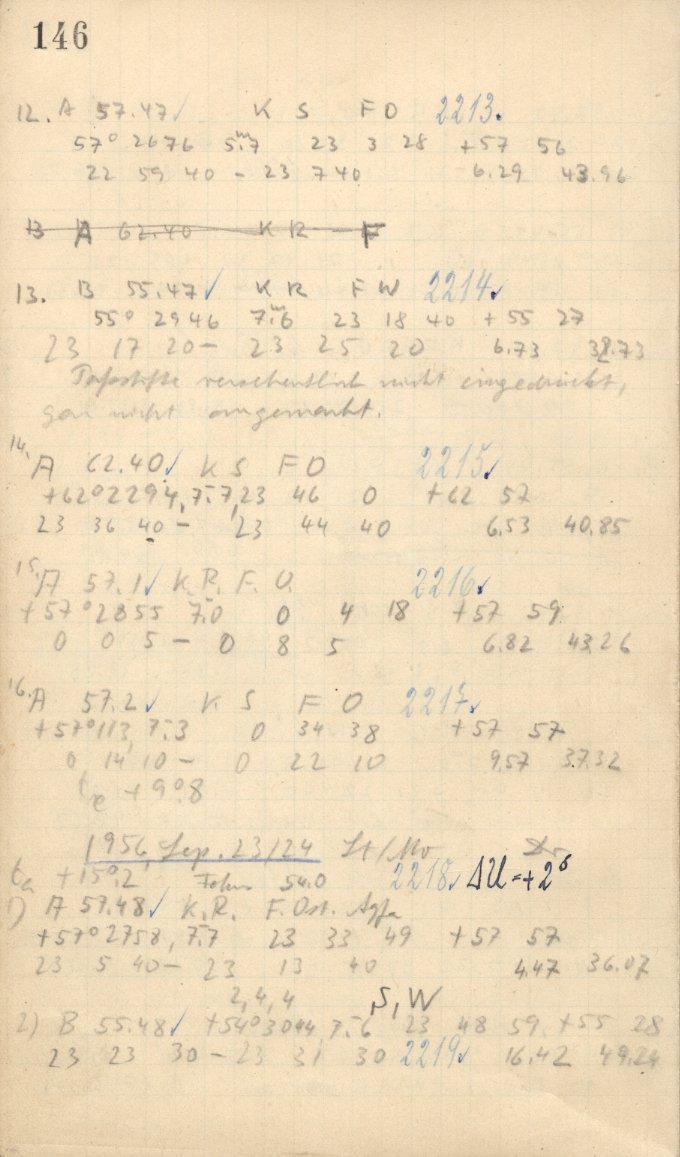 146
12. A 57.47✓ K S F O 2213.
57° 2676 5ᵐ.7 23 3 28 +57 56
22 59 40 – 23 7 40 6.29 43.96
13 A 62.40 K R F
13. B 55.47✓ K R F W 2214✓
55° 2946 7ᵐ.6 23 18 40 +55 27
23 17 20 – 23 25 20 6.73 38.73
versehentlich nicht eingedrückt,
gar nicht angemacht.
14. A 62.40✓ K S F O 2215✓
+62°2294, 7.7, 23 46 0 +62 57
23 36 40 – 23 44 40 6.53 40.85
15. A 57.1✓ K. R. F. O. 2216✓
+57°2855 7.0 0 4 18 +57 59
0 0 5 – 0 8 5 6.82 43.26
16. A 57.2✓ K S F O 2217✓
+57°113, 7.3 0 34 38 +57 57
0 14 10 – 0 22 10 9.57 37.32
tₑ +9°.8
1956 Sep. 23/24 St/Mo
tₐ +15°.2 Fokus 54.0 2218✓ ΔU = +2ˢ
1) A 57.48✓ K. R. F. Ost. Agfa
+57°2758, 7.7 23 33 49 +57 57
23 5 40 – 23 13 40 4.47 36.07
2, 4, 4 S, W
2) B 55.48✓ +54°3044, 7.6 23 48 59 +55 28
23 23 30 – 23 31 30 2219✓ 16.42 49.24